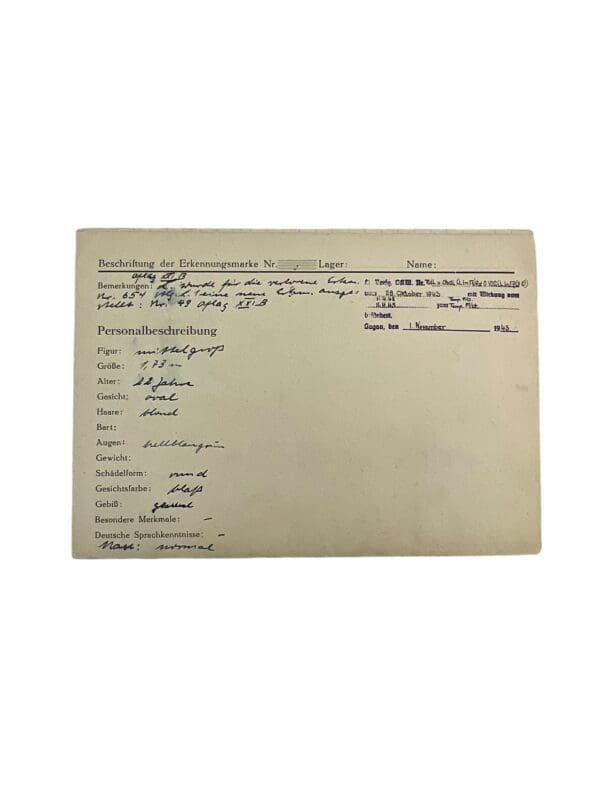 Beschriftung der Erkennungsmarke Nr. Lager: Name:
Oflag XXI B
Bemerkungen: wurde für die verlorene Erken.
Nr. 654 eine neue Erkenn. ausge-
stellt: Nr. 49 Oflag XXI B
28. Oktober 1943 mit Wirkung vom
befördert.
Sagan, den 1. November 1943
Personalbeschreibung
Figur: mittelgroß
Größe: 1,73 m
Alter: 22 Jahre
Gesicht: oval
Haare: blond
Bart:
Augen: hellblaugrün
Gewicht:
Schädelform: rund
Gesichtsfarbe: blaß
Gebiß: gesund
Besondere Merkmale: –
Deutsche Sprachkenntnisse: –
Nase: normal